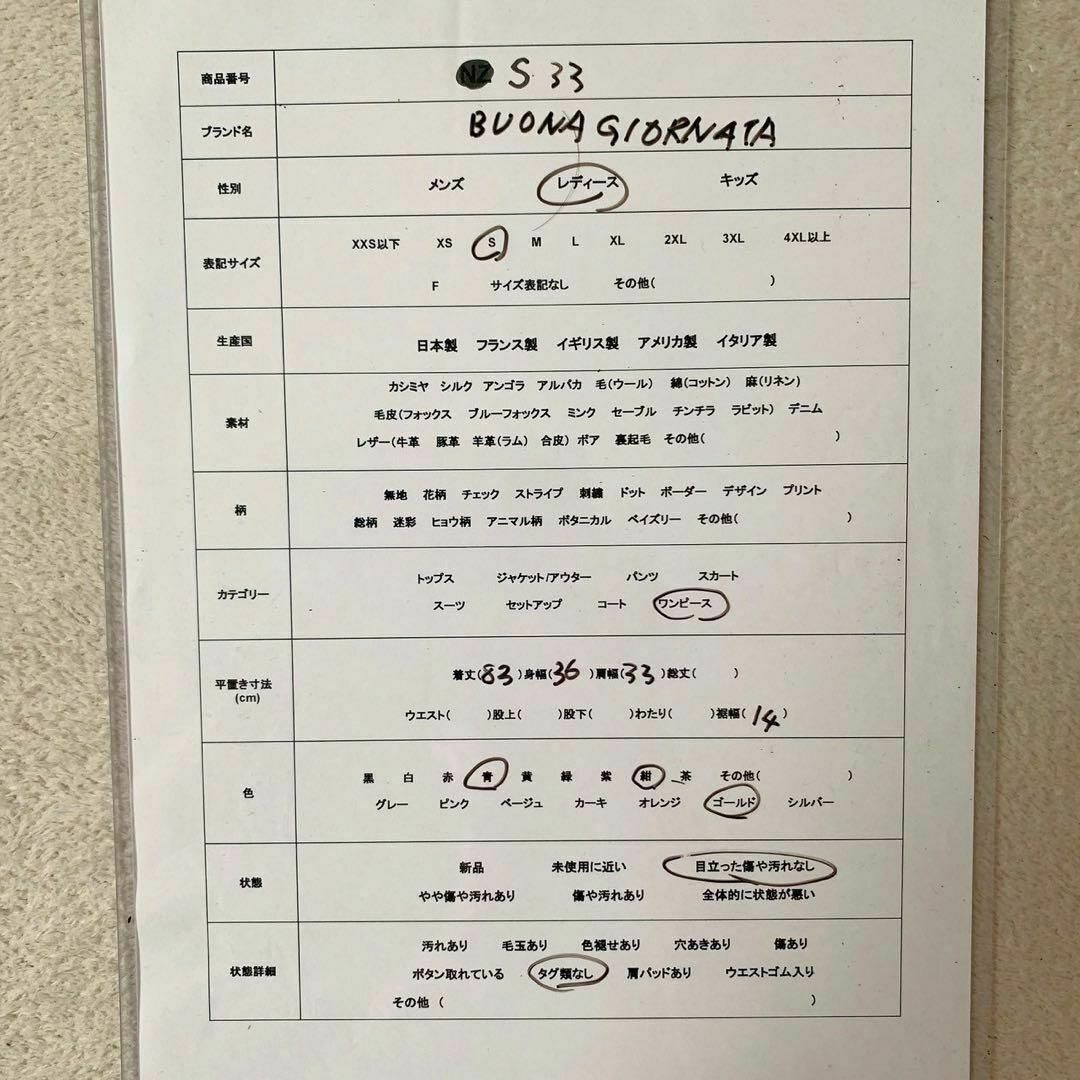 商品番号 NZ S 33
ブランド名 BUONA GIORNATA
性別 メンズ レディース キッズ
XXS以下 XS S M L XL 2XL 3XL 4XL以上
表記サイズ
F サイズ表記なし その他( )
生産国 日本製 フランス製 イギリス製 アメリカ製 イタリア製
カシミヤ シルク アンゴラ アルパカ 毛(ウール) 綿(コットン) 麻(リネン)
素材 毛皮(フォックス ブルーフォックス ミンク セーブル チンチラ ラビット) デニム
レザー(牛革 豚革 羊革(ラム) 合皮) ボア 裏起毛 その他( )
無地 花柄 チェック ストライプ 刺繍 ドット ボーダー デザイン プリント
柄
総柄 迷彩 ヒョウ柄 アニマル柄 ボタニカル ペイズリー その他( )
トップス ジャケット/アウター パンツ スカート
カテゴリー
スーツ セットアップ コート ワンピース
着丈(83)身幅(36)肩幅(33)総丈( )
平置き寸法
(cm)
ウエスト( )股上( )股下( )わたり( )裾幅(14)
黒 白 赤 青 黄 緑 紫 紺 茶 その他( )
色
グレー ピンク ベージュ カーキ オレンジ ゴールド シルバー
新品 未使用に近い 目立った傷や汚れなし
状態
やや傷や汚れあり 傷や汚れあり 全体的に状態が悪い
汚れあり 毛玉あり 色褪せあり 穴あきあり 傷あり
状態詳細 ボタン取れている タグ類なし 肩パッドあり ウエストゴム入り
その他 ( )